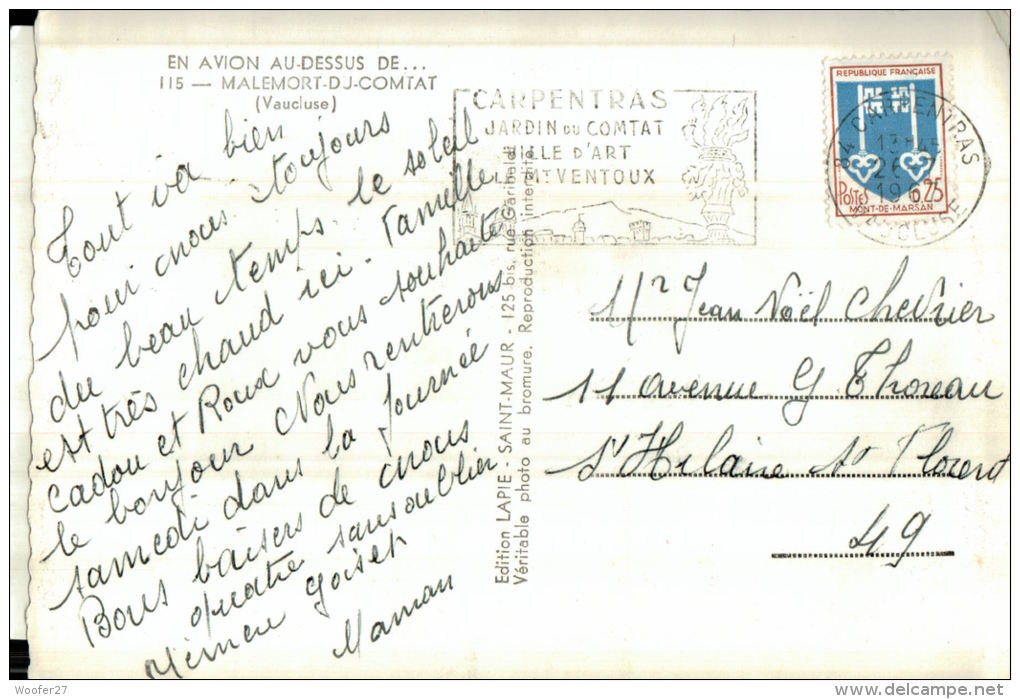 EN AVION AU-DESSUS DE...
115 — MALEMORT-DU-COMTAT
(Vaucluse)
CARPENTRAS
JARDIN DU COMTAT
VILLE D'ART
MT VENTOUX
REPUBLIQUE FRANÇAISE
POSTES 0,25
MONT-DE-MARSAN
84 CARPENTRAS
13H45
26-7
1967
VAUCLUSE
Tout va bien
pour nous toujours
du beau temps le soleil
est très chaud ici. Famille
Cadou et Roux vous souhaite
le bonjour Nous rentrerons
samedi dans la journée
Bons baisers de nous
quatre sans oublier
Mémère
Maman
Edition LAPIE - SAINT-MAUR - 125 bis, rue Garibaldi
Véritable photo au bromure. Reproduction interdite
Mr Jean Noël Chevrier
11 avenue G Thoreau
St Hilaire St Florent
49
Woofer27
www.delcampe.net